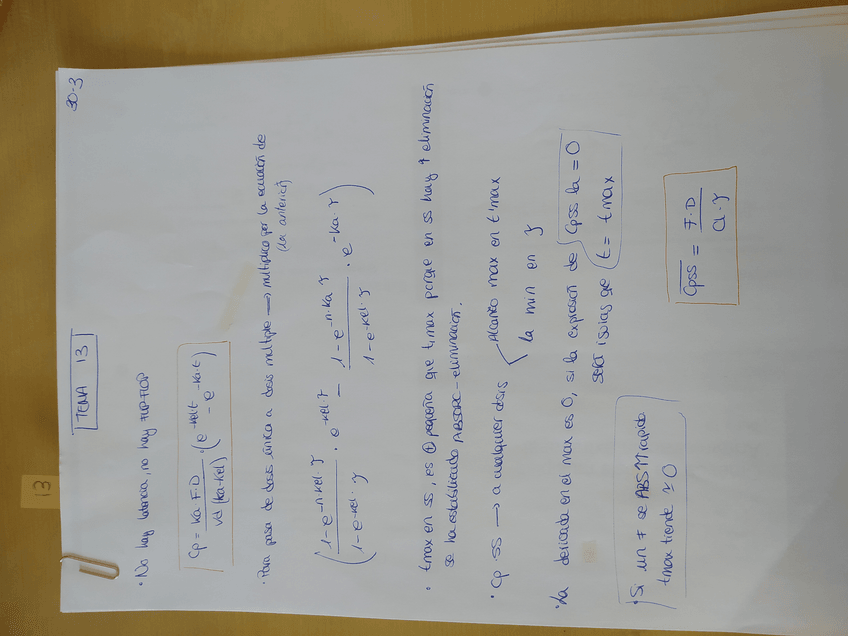 30-3
TEMA 13
· No hay latencia, no hay FLIP-FLOP
Cp = Ka·F·D / Vd (Ka-Kel) · (e^-Kel·t - e^-Ka·t)
· Para pasar de dosis única a dosis multiple → multiplico por la ecuación de
(la anterior)
( 1-e^-n·Kel·γ / 1-e^-Kel·γ · e^-Kel·γ - 1-e^-n·Ka·γ / 1-e^-Kel·γ · e^-Ka·γ )
· tmax en ss, es + pequeña que t,max porque en ss hay ↑ eliminación
se ha estabilizado ABSORC-eliminación.
· Cp ss → a cualquier dosis
Alcanzo max en t'max
la min en γ
· La derivada en el max es 0, si la expresión de Cpss la = 0
t = tmax
· Si un F se ABS ↑↑ rapido
tmax tiende ≃ 0
Cpss = F·D / Cl·γ
13